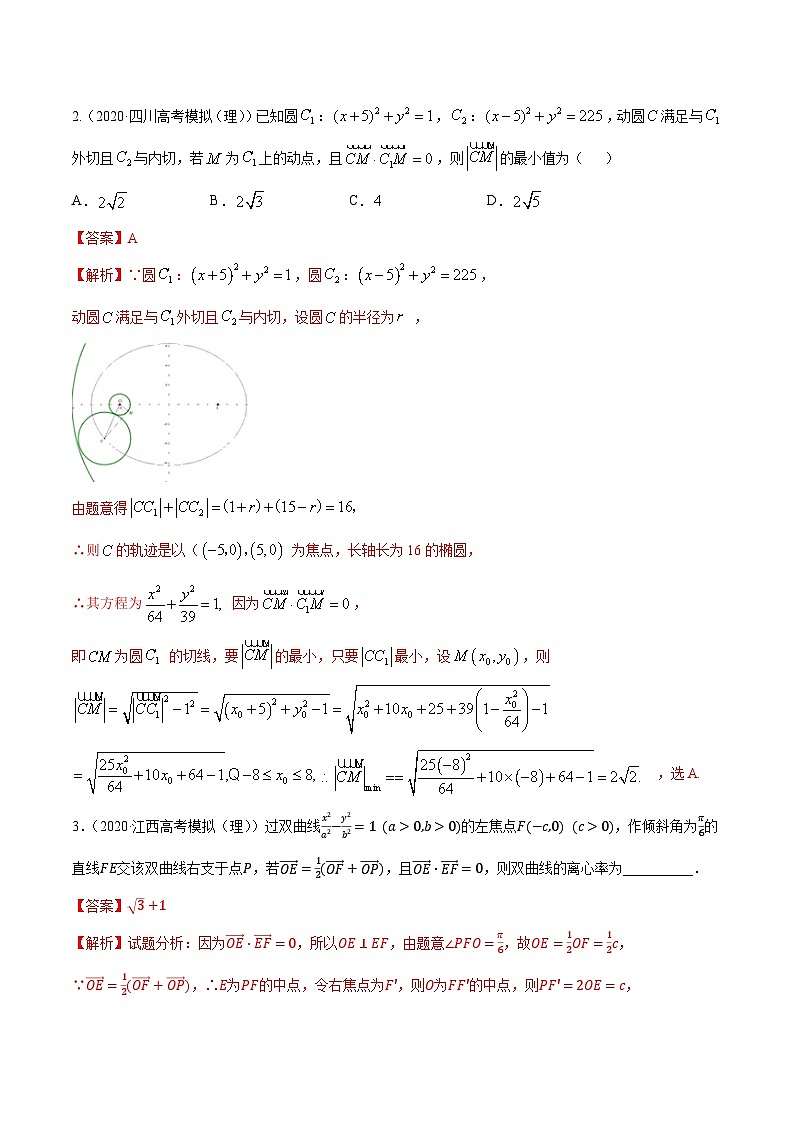 2.(2020·四川高考模拟(理))已知圆C₁:(x+5)²+y²=1,C₂:(x−5)²+y²=225,动圆C满足与C₁
外切且C₂与内切,若M为C₁上的动点,且CM·C₁M=0,则|CM|的最小值为( )
A.2√2 B.2√3 C.4 D.2√5
【答案】A
【解析】∵圆C₁:(x+5)²+y²=1,圆C₂:(x−5)²+y²=225,
动圆C满足与C₁外切且C₂与内切,设圆C的半径为r ,
由题意得|CC₁|+|CC₂|=(1+r)+(15−r)=16,
∴则C的轨迹是以((−5,0),(5,0) 为焦点,长轴长为 16 的椭圆,
∴其方程为x²/64+y²/39=1, 因为CM·C₁M=0,
即CM为圆C₁ 的切线,要|CM|的最小,只要|CC₁|最小,设M(x₀,y₀),则
|CM|=√(|CC₁|²−1²)=√((x₀+5)²+y₀²−1)=√(x₀²+10x₀+25+39(1−x₀²/64)−1)
=√(25x₀²/64+10x₀+64−1),Q−8≤x₀≤8,∴|CM|min ==√(25(−8)²/64+10×(−8)+64−1)=2√2. ,选 A.
3.(2020·江西高考模拟(理))过双曲线x²/a²−y²/b²=1 (a>0,b>0)的左焦点F(−c,0) (c>0),作倾斜角为π/6的
直线FE交该双曲线右支于点P,若OE=1/2(OF+OP),且OE·EF=0,则双曲线的离心率为__________.
【答案】√3+1
【解析】试题分析:因为OE·EF=0,所以OE⊥EF,由题意∠PFO=π/6,故OE=1/2OF=1/2c,
∵OE=1/2(OF+OP),∴E为PF的中点,令右焦点为F′,则O为FF′的中点,则PF′=2OE=c,